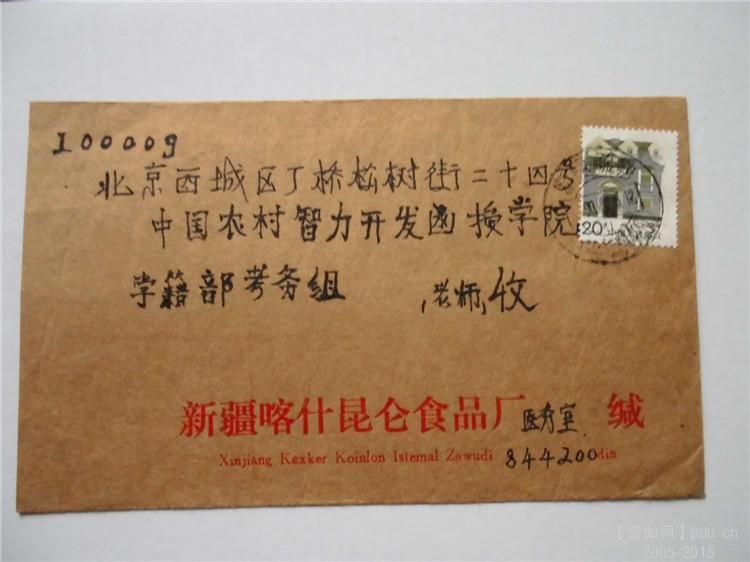 100009
北京西城区丁桥松树街二十四号
中国农村智力开发函授学院
学籍部考务组 老师 收
20分
新疆喀什昆仑食品厂 医务室 缄
Xinjiang Kexker Koinlon Istemal Zawudi 844200 din
【普邮网】puu.cn
2005-2015